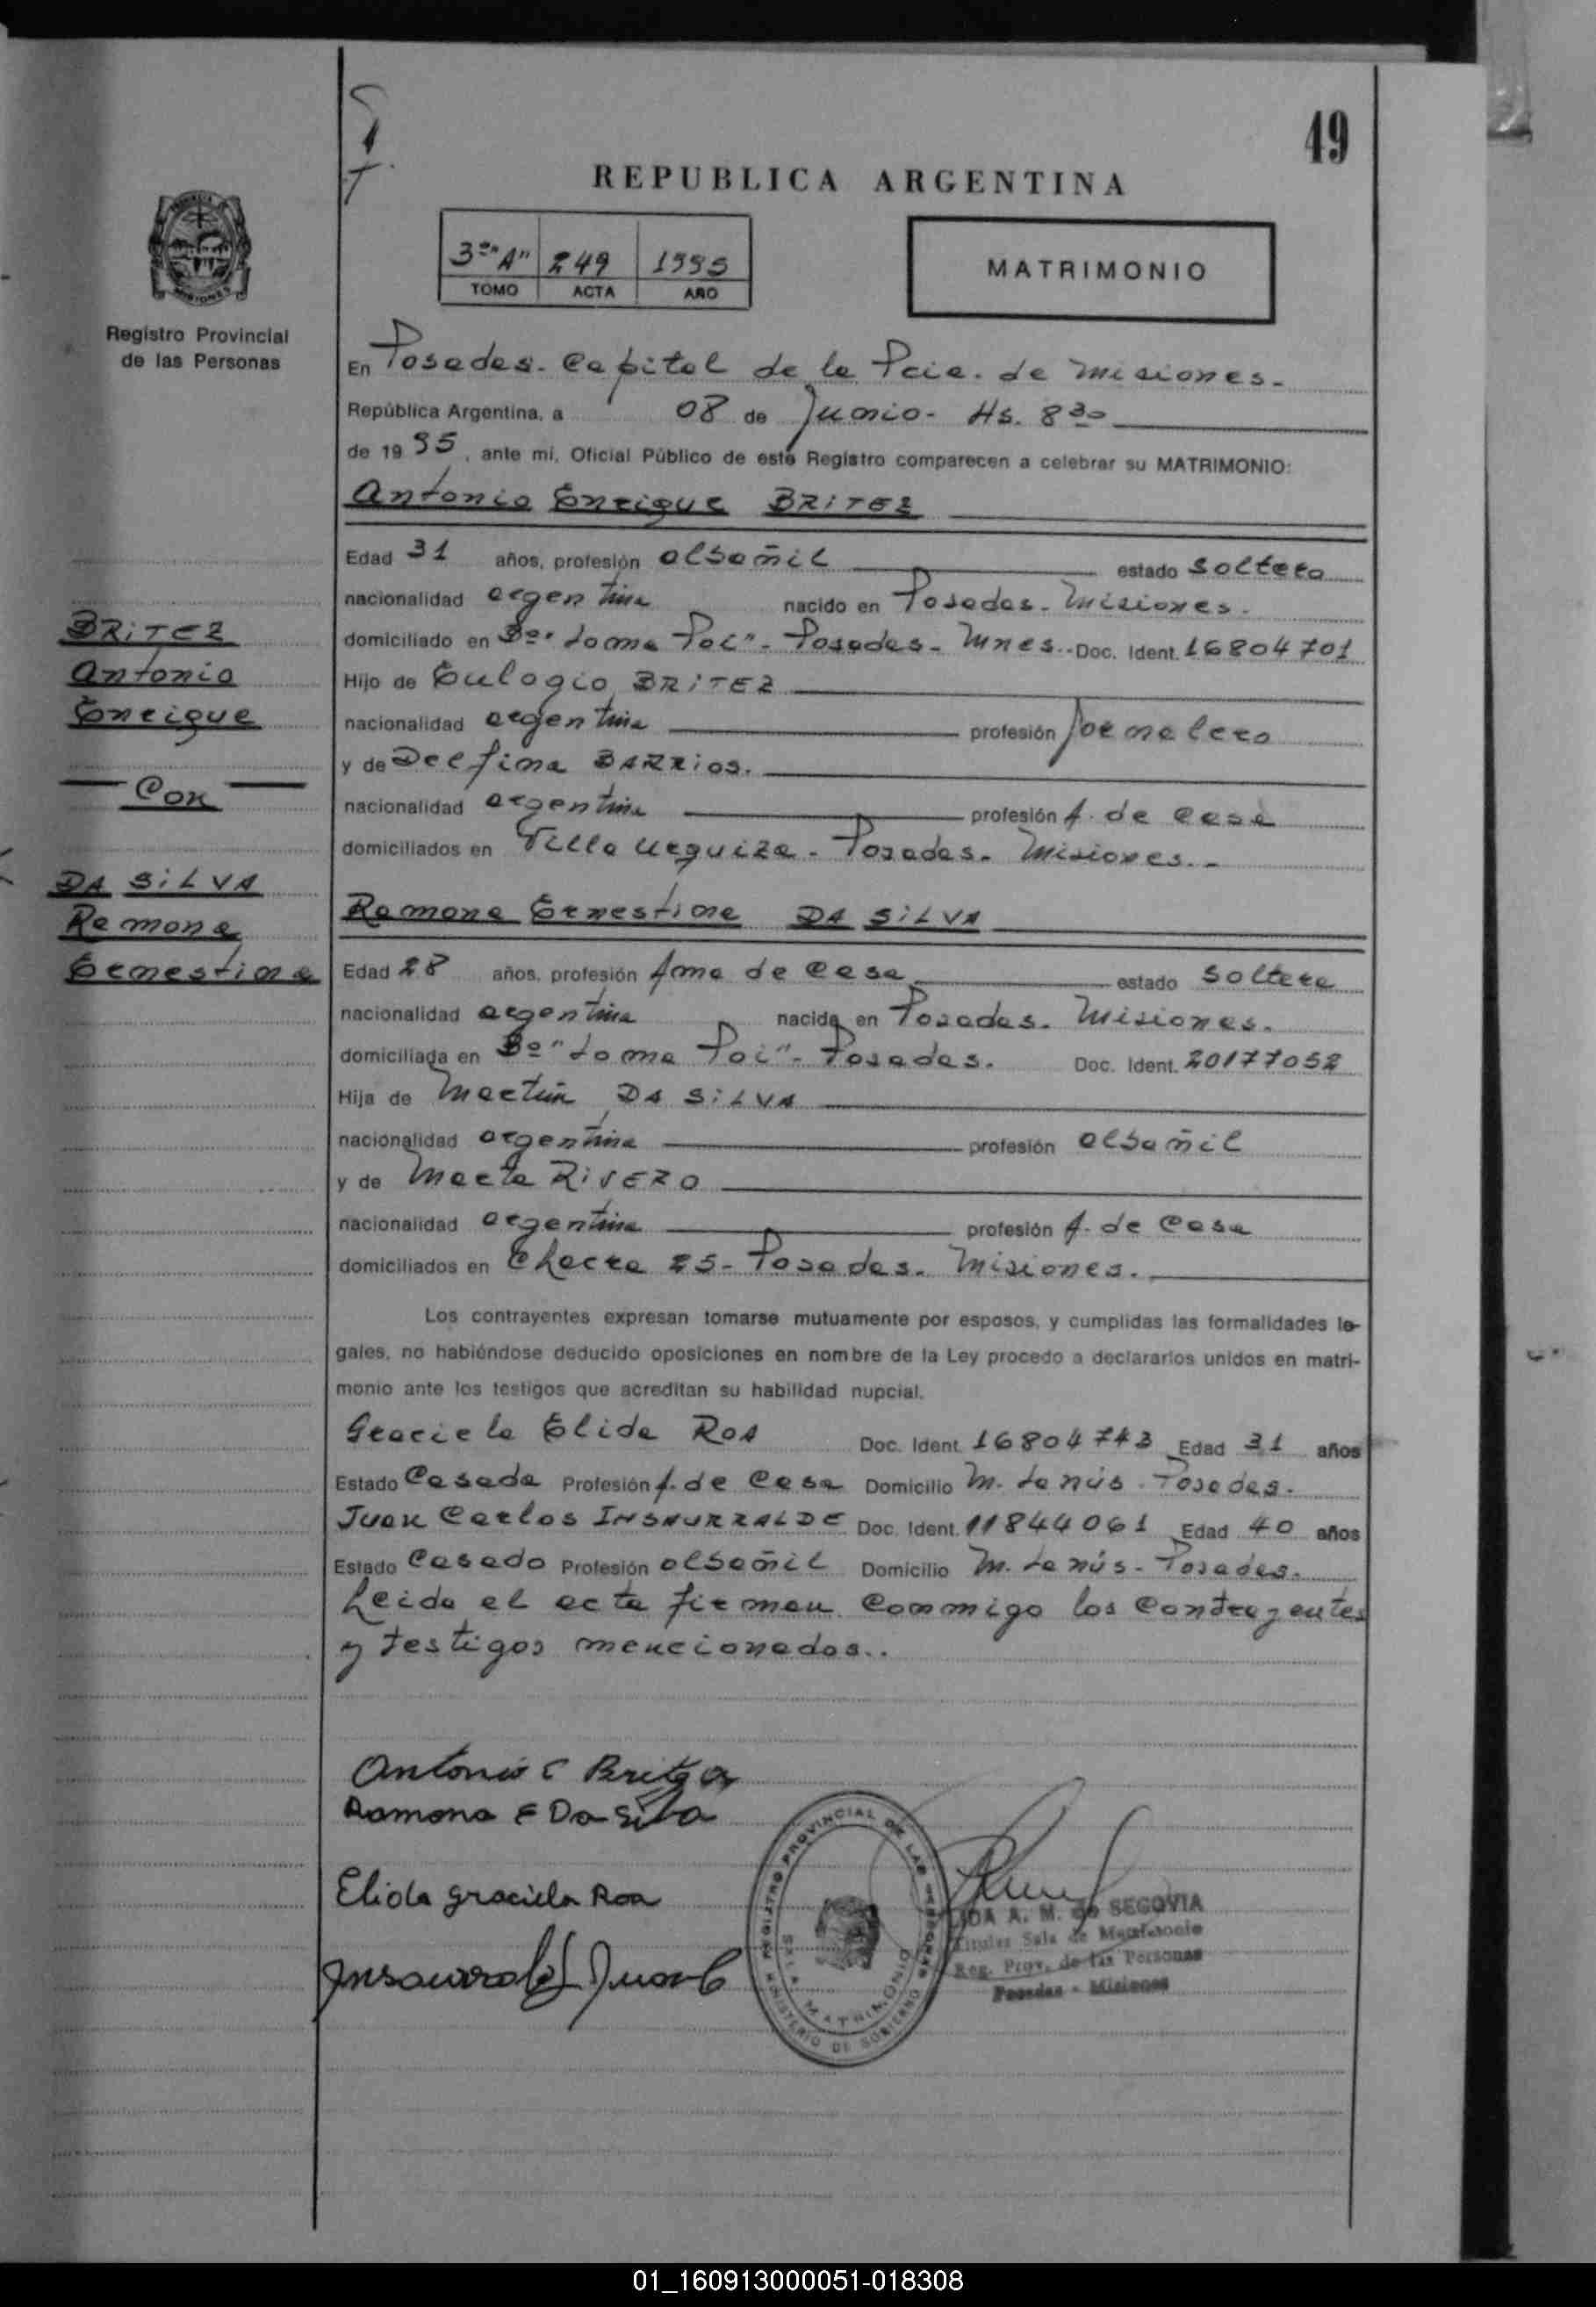 49
REPUBLICA ARGENTINA
3º "A" 249 1995
TOMO ACTA AÑO
MATRIMONIO
MISIONES
Registro Provincial
de las Personas
En Posadas. Capital de la Pcia. de Misiones.
República Argentina, a 08 de Junio - Hs. 8³⁰
de 1995, ante mí, Oficial Público de este Registro comparecen a celebrar su MATRIMONIO:
Antonio Enrique BRITEZ
Edad 31 años, profesión albañil estado soltero
nacionalidad argentina nacido en Posadas. Misiones.
domiciliado en Bº "Loma Poi" - Posadas - Mnes. Doc. Ident. 16804701
Hijo de Eulogio BRITEZ
nacionalidad argentina profesión Jornalero
y de Delfina BARRIOS.
nacionalidad argentina profesión A. de Casa
domiciliados en Villa Urquiza - Posadas. Misiones.
BRITEZ
Antonio
Enrique
Con
DA SILVA
Ramona
Ernestina
Ramona Ernestina DA SILVA
Edad 28 años, profesión Ama de Casa estado soltera
nacionalidad argentina nacida en Posadas. Misiones.
domiciliada en Bº "Loma Poi" - Posadas. Doc. Ident. 20177052
Hija de Martín DA SILVA
nacionalidad argentina profesión albañil
y de Marta RIVERO
nacionalidad argentina profesión A. de Casa
domiciliados en Chacra 25 - Posadas. Misiones.
Los contrayentes expresan tomarse mutuamente por esposos, y cumplidas las formalidades le-
gales, no habiéndose deducido oposiciones en nombre de la Ley procedo a declararlos unidos en matri-
monio ante los testigos que acreditan su habilidad nupcial.
Graciela Elida ROA Doc. Ident. 16804743 Edad 31 años
Estado Casada Profesión A. de Casa Domicilio M. Lanús - Posadas.
Juan Carlos INSAURRALDE Doc. Ident. 11844061 Edad 40 años
Estado Casado Profesión albañil Domicilio M. Lanús - Posadas.
Leida el acta firman conmigo los contrayentes
y testigos mencionados..
Antonio E Britez
Ramona E Da Silva
Elida Graciela Roa
Insaurralde Juan C
REGISTRO PROVINCIAL DE LAS PERSONAS
SALA MATRIMONIO
MINISTERIO DE GOBIERNO
A. M. de SEGOVIA
Titular Sala de Matrimonio
Reg. Prov. de las Personas
Posadas - Misiones
01_160913000051-018308